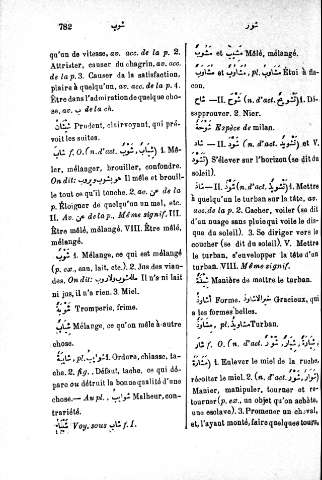 782 شوب شور
qu'un de vitesse, av. acc. de la p. 2.
Attrister, causer du chagrin, av. acc.
de la p. 3. Causer de la satisfaction,
plaire à quelqu'un, av. acc. de la p. 4.
Être dans l'admiration de quelque cho-
se, av. ب de la ch.
Prudent, clairvoyant, qui pré-
voit les suites.
شاب f. O. (n. d'act. شَوْب, شِيَاب) 1. Mê-
ler, mélanger, brouiller, confondre.
On dit: هو يشوب ويروب Il mêle et brouil-
le tout ce qu'il touche. 2. av. عن de la
p. Éloigner de quelqu'un un mal, etc.
II. Av. عن de la p., Même signif. III.
Être mêlé, mélangé. VIII. Être mêlé,
mélangé.
شَوْب 1. Mélange, ce qui est mélangé
(p. ex., eau, lait, etc.). 2. Jus des vian-
des. On dit: Il n'a ni lait
ni jos, il n'a rien. 3. Miel.
شَوْبَة Tromperie, frime.
Mélange, ce qu'on mêle à autre
chose.
شَائِبَة, pl. شوايب 1. Ordure, chiasse, ta-
che. 2. fig., Défaut, tache, ce qui dé-
pare ou détruit la bonne qualité d'une
chose.— Au pl. شوايب Malheur, con-
trariété.
2. Voy. sous شاب f. I.
مَشُوب et مَشِيب Mêlé, mélangé.
et مشاوب, pl. مشاوب Étui à fla-
con.
شاح —II. شَوَّح (n. d'act. تشويح) 1. Dé-
sapprouver. 2. Nier.
شُوحَة Espèce de milan.
et V.
S'élever sur l'horizon (se dit du
soleil).
شاذ —II. شَوَّذ (n. d'act. تشويذ) 1. Mettre
à quelqu'un le turban sur la tête, av.
acc. de la p. 2. Cacher, voiler (se dit
d'un nuage sans pluie qui voile le dis-
que du soleil). 3. Se diriger vers le
coucher (se dit du soleil). V. Mettre
le turban, s'envelopper la tête d'un
turban. VIII. Même signif.
Manière de mettre le turban.
Forme. Gracieux, qui
a les formes belles.
pl. مشاوذ Turban.
شار f. O. (n. d'act. شَوْر, شِيَار, شِيَارَة,
1. Enlever le miel de la ruche,
récolter le miel. 2. (n. d'act. شَوْر, شِوَار)
Manier, manipuler, tourner et re-
tourner (p. ex., un objet qu'on achète,
une esclave). 3. Promener un cheval,
et, l'ayant monté, faire quelques tours,